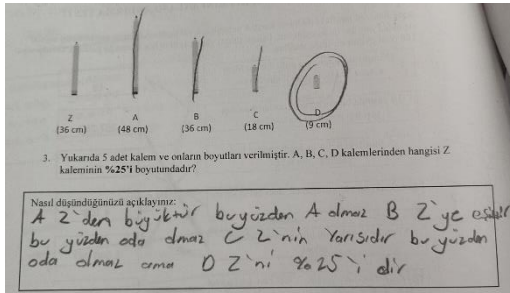 Z A B C D
(36 cm) (48 cm) (36 cm) (18 cm) (9 cm)
3. Yukarıda 5 adet kalem ve onların boyutları verilmiştir. A, B, C, D kalemlerinden hangisi Z
kaleminin %25'i boyutundadır?
Nasıl düşündüğünüzü açıklayınız:
A Z'den büyüktür bu yüzden A olmaz B Z'ye eşittir
bu yüzden oda olmaz C Z'nin Yarısıdır bu yüzden
oda olmaz ama D Z'ni %25'i dir